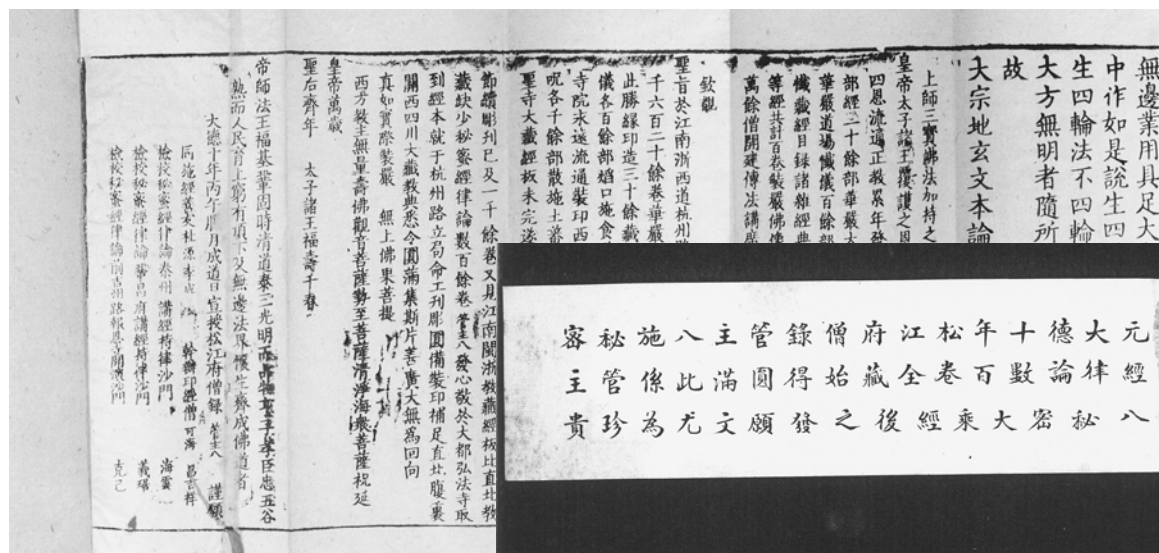 無邊業用具足大
中作如是說生四
生四輪法不四輪
大方無明者隨所
故
大宗地玄文本論
上師三寶佛法加持之
皇帝太子諸王覆護之恩
四恩流通正教累年發
部經三十餘部華嚴大
華嚴道場懺儀百餘部
懺藏經目錄諸雜經典
等經共計百卷裝嚴佛像
萬餘僧開建傳法講席
欽覩
聖旨於江南浙西道杭州路
千六百二十餘卷華嚴
此勝緣印造三十餘藏
儀各百餘部焰口施食
寺院永遠流通裝印西
呪各千餘部散施土蕃
聖寺大藏經板未完遂
節續雕刊已及一千餘卷又見江南閩浙教藏經板比直北教
藏缺少秘密經律論數百餘卷 管主八發心敬於大都弘法寺取
到經本就于杭州路立局命工刊雕圓備裝印補足直北腹裏
關西四川大藏教典悉令圓滿集斯片善廣大無為回向
真如實際裝嚴 無上佛果菩提
西方教主無量壽佛觀音菩薩勢至菩薩清淨海衆菩薩祝延
皇帝萬歲
聖后齊年 太子諸王福壽千春
帝師法王福基鞏固時清道泰三光明而品物亨子孝臣忠五谷
熟而人民育上窮有頂下及無邊法界懷生齊成佛道者
大德十年丙午臘月成道日宣授松江府僧錄 管主八 謹願
同施經善友杜源 李成 幹辦印經僧可海 昌吉祥
檢校秘密經律論秦州講經持律沙門 海雷
檢校秘密經律論鞏昌府講經持律沙門 義琚
檢校秘密經律論前吉州路報恩寺開演沙門 克己
元大德十年松江府僧錄管主八施秘密
經律論數百卷全藏始得圓滿此係管主
八秘密大乘經後之發願文尤為珍貴